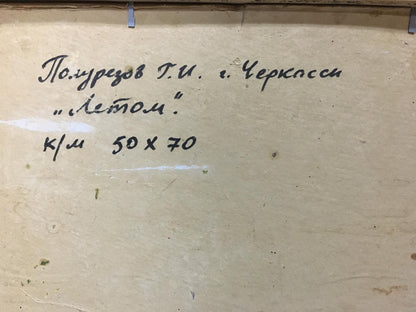 Полурезов Г.И. г. Черкасси
„Летом."
к/м 50 х 70